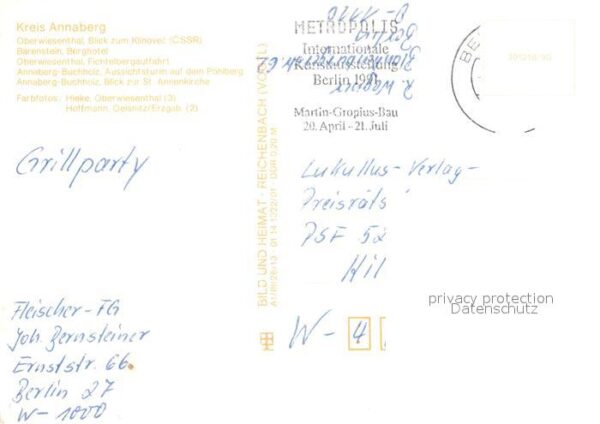 Kreis Annaberg
Oberwiesenthal, Blick zum Klinovec (ČSSR)
Bärenstein, Berghotel
Oberwiesenthal, Fichtelbergauffahrt
Annaberg-Buchholz, Aussichtsturm auf dem Pöhlberg
Annaberg-Buchholz, Blick zur St. Annenkirche
Farbfotos: Hieke, Oberwiesenthal (3)
Hoffmann, Oelsnitz/Erzgeb. (2)
Grillparty
Fleischer-FG
Joh. Bernsteiner
Ernststr. 66
Berlin 27
W-1000
BILD UND HEIMAT · REICHENBACH (VOGTL)
DDR 0,20 M
METROPOLIS
Internationale
Kunstausstellung
Berlin 1991
Martin-Gropius-Bau
20. April - 21. Juli
BE
Lukullus-Verlag-
Preisräts
PSF 52
Hil
W- 4
privacy protection
Datenschutz